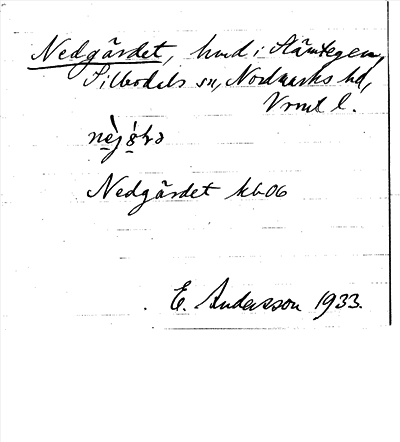 Nedgärdet, hmd i Hämtegen,
Silbodals sn, Nordmarks hd,
Vrml l.
Nedgärdet kb 06
E. Andersson 1933.